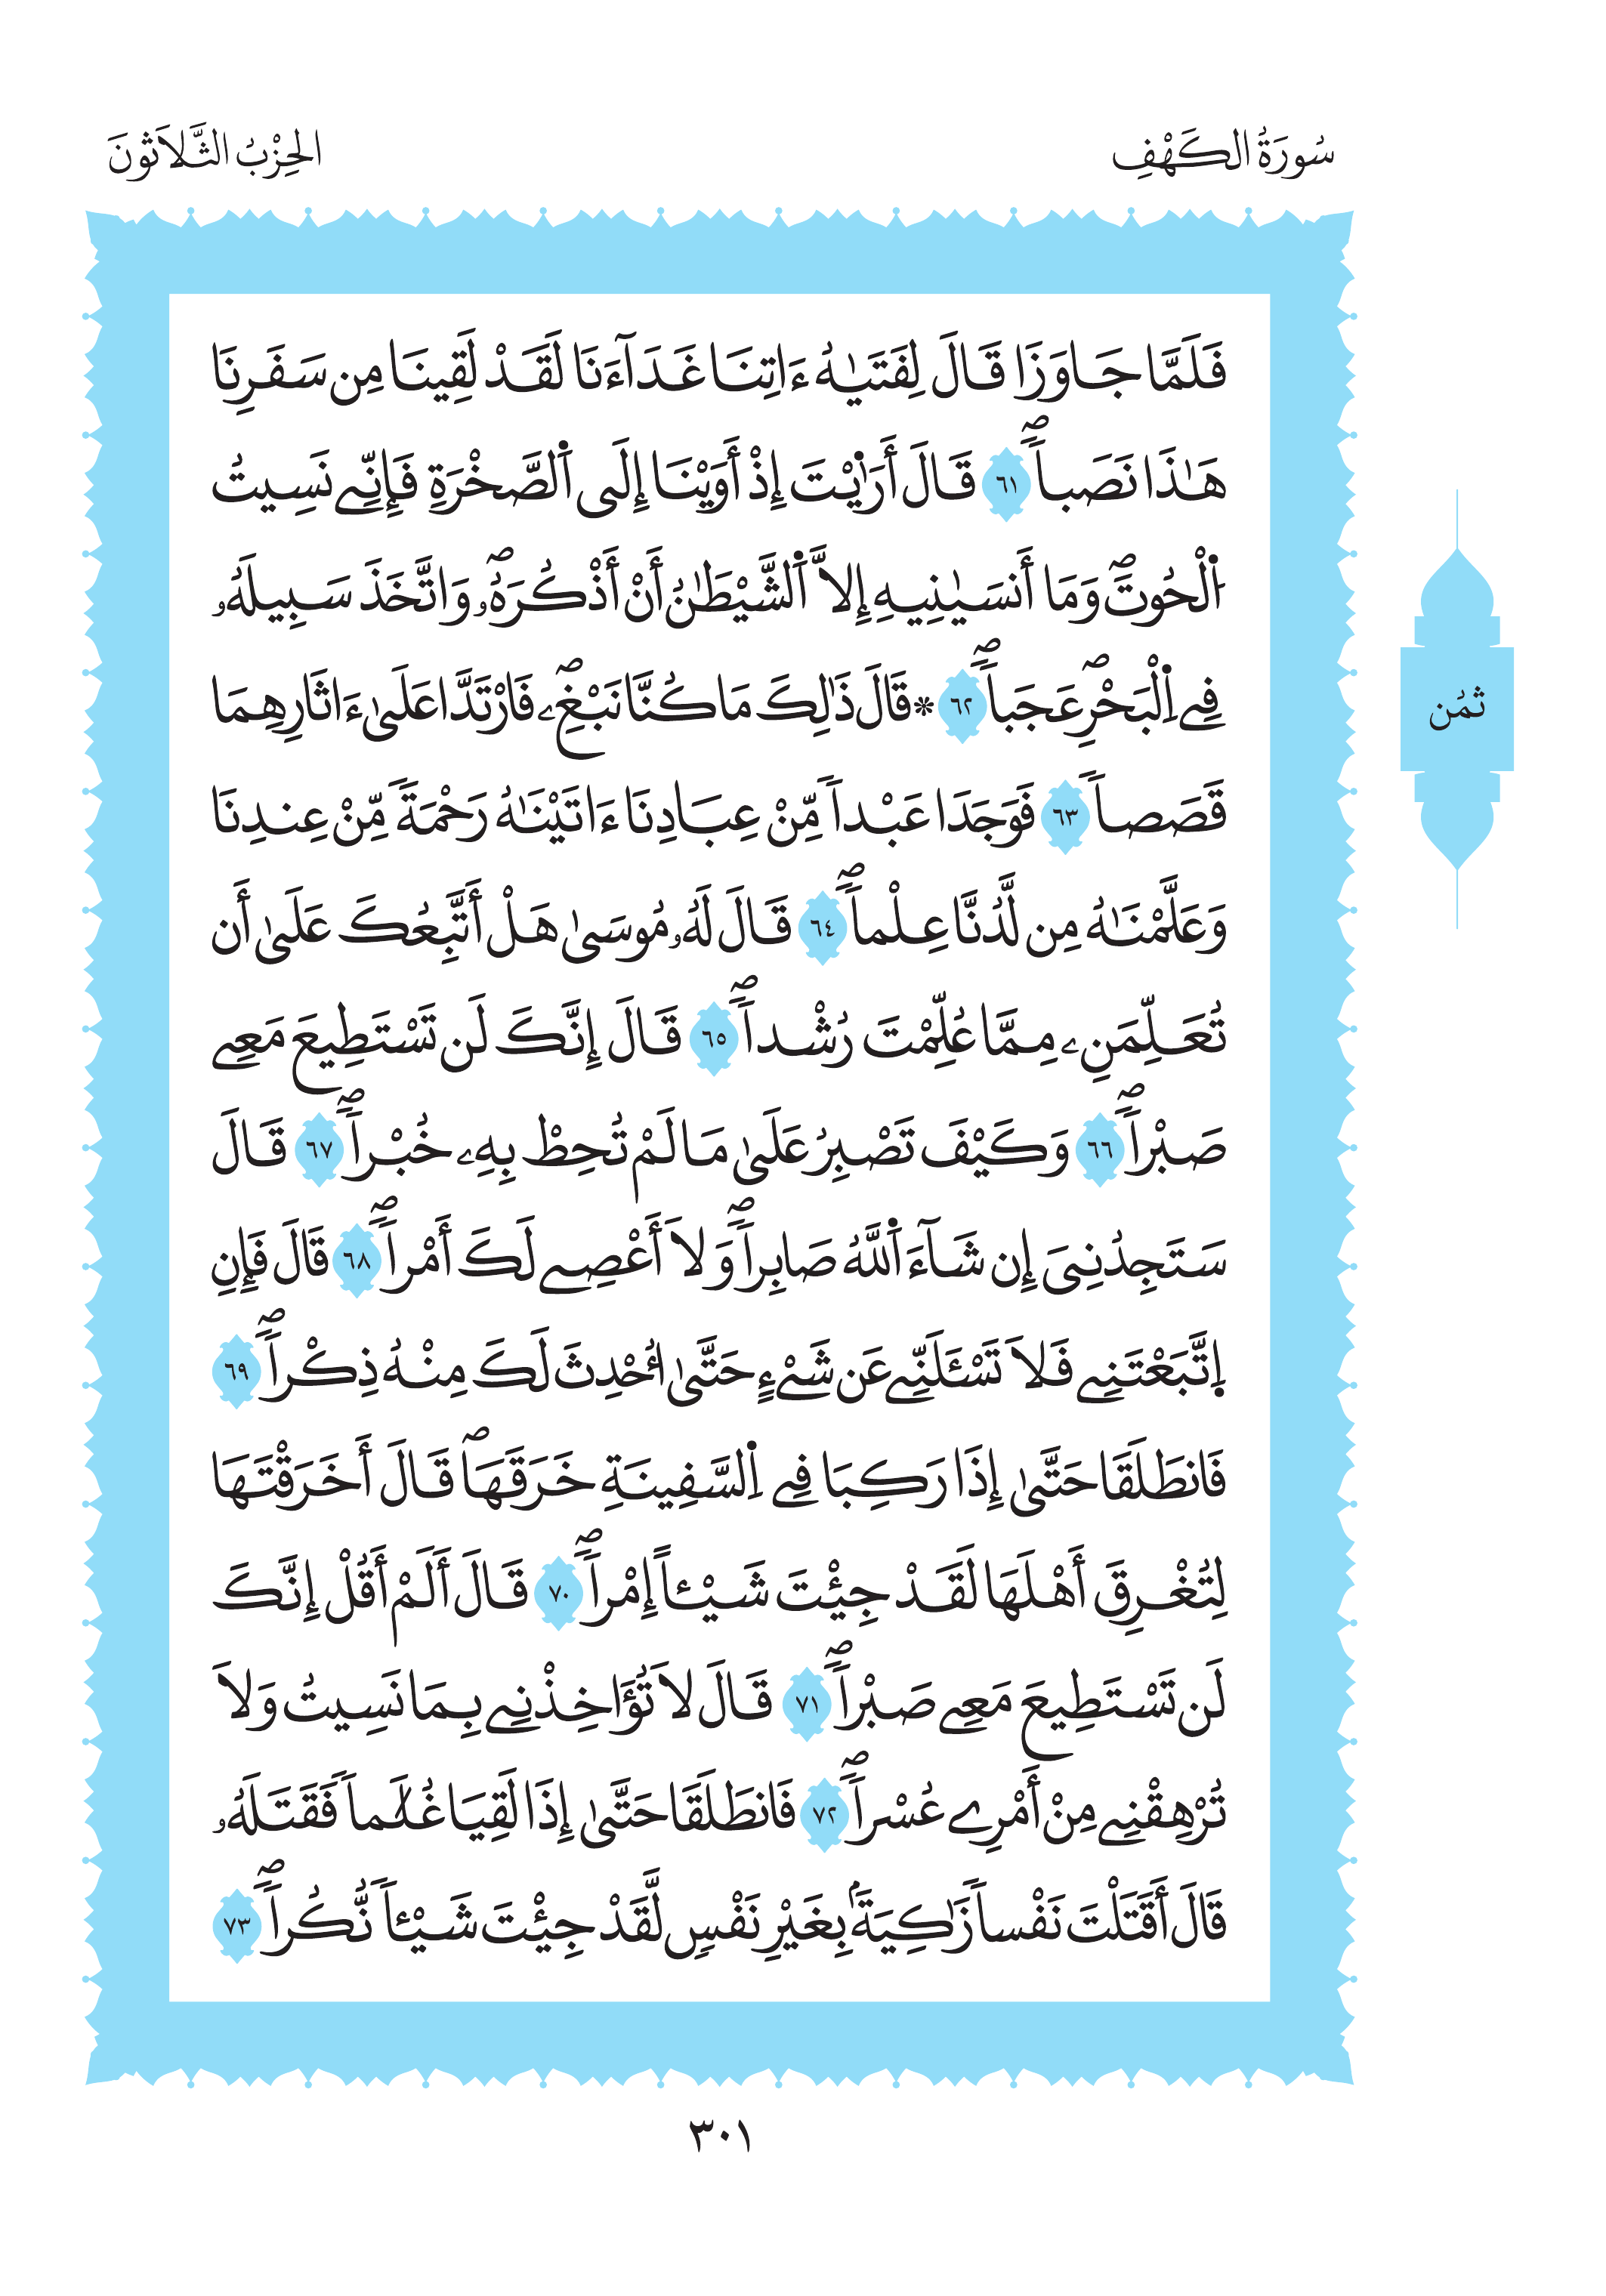 سُورَةُ الكَهْفِ
الحِزْبُ الثَّلَاثُونَ
فَلَمَّا جَاوَزَا قَالَ لِفَتَىٰهُ ءَاتِنَا غَدَآءَنَا لَقَدْ لَقِينَا مِن سَفَرِنَا
هَٰذَا نَصَباࣰۖ ٦١ قَالَ أَرَٰيْتَ إِذْ أَوَيْنَا إِلَى اَ۬لصَّخْرَةِ فَإِنِّے نَسِيتُ
اُ۬لْحُوتَۖ وَمَا أَنسَىٰنِيهِ إِلَّا اَ۬لشَّيْطَٰنُ أَنْ أَذْكُرَهُۥۖ وَاتَّخَذَ سَبِيلَهُۥ
فِے اِ۬لْبَحْرِۖ عَجَباࣰۖ ٦٢ ۞ قَالَ ذَٰلِكَ مَا كُنَّا نَبْغِۦۖ فَارْتَدَّا عَلَىٰ ءَاثَارِهِمَا
قَصَصاࣰ ٦٣ فَوَجَدَا عَبْداࣰ مِّنْ عِبَادِنَا ءَاتَيْنَٰهُ رَحْمَةࣰ مِّنْ عِندِنَا
وَعَلَّمْنَٰهُ مِن لَّدُنَّا عِلْماࣰۖ ٦٤ قَالَ لَهُۥ مُوسَىٰ هَلْ أَتَّبِعُكَ عَلَىٰ أَن
تُعَلِّمَنِۦ مِمَّا عُلِّمْتَ رُشْداࣰۖ ٦٥ قَالَ إِنَّكَ لَن تَسْتَطِيعَ مَعِے
صَبْراࣰۖ ٦٦ وَكَيْفَ تَصْبِرُ عَلَىٰ مَا لَمْ تُحِطْ بِهِۦ خُبْراࣰۖ ٦٧ قَالَ
سَتَجِدُنِيَ إِن شَآءَ اَ۬للَّهُ صَابِراࣰۖ وَلَا أَعْصِے لَكَ أَمْراࣰۖ ٦٨ قَالَ فَإِنِ
اِ۪تَّبَعْتَنِے فَلَا تَسْـَٔلَنِّے عَن شَےْءٍ حَتَّىٰ أُحْدِثَ لَكَ مِنْهُ ذِكْراࣰۖ ٦٩
فَانطَلَقَا حَتَّىٰ إِذَا رَكِبَا فِے اِ۬لسَّفِينَةِ خَرَقَهَاۖ قَالَ أَخَرَقْتَهَا
لِتُغْرِقَ أَهْلَهَا لَقَدْ جِئْتَ شَيْـٔاً إِمْراࣰۖ ٧٠ قَالَ أَلَمْ أَقُلْ إِنَّكَ
لَن تَسْتَطِيعَ مَعِے صَبْراࣰۖ ٧١ قَالَ لَا تُؤَاخِذْنِے بِمَا نَسِيتُ وَلَا
تُرْهِقْنِے مِنْ أَمْرِے عُسْراࣰۖ ٧٢ فَانطَلَقَا حَتَّىٰ إِذَا لَقِيَا غُلَٰماࣰ فَقَتَلَهُۥ
قَالَ أَقَتَلْتَ نَفْساࣰ زَٰكِيَةَۢ بِغَيْرِ نَفْسٍ لَّقَدْ جِئْتَ شَيْـٔاࣰ نُّكُراࣰۖ ٧٣
ثُمُن
٣٠١